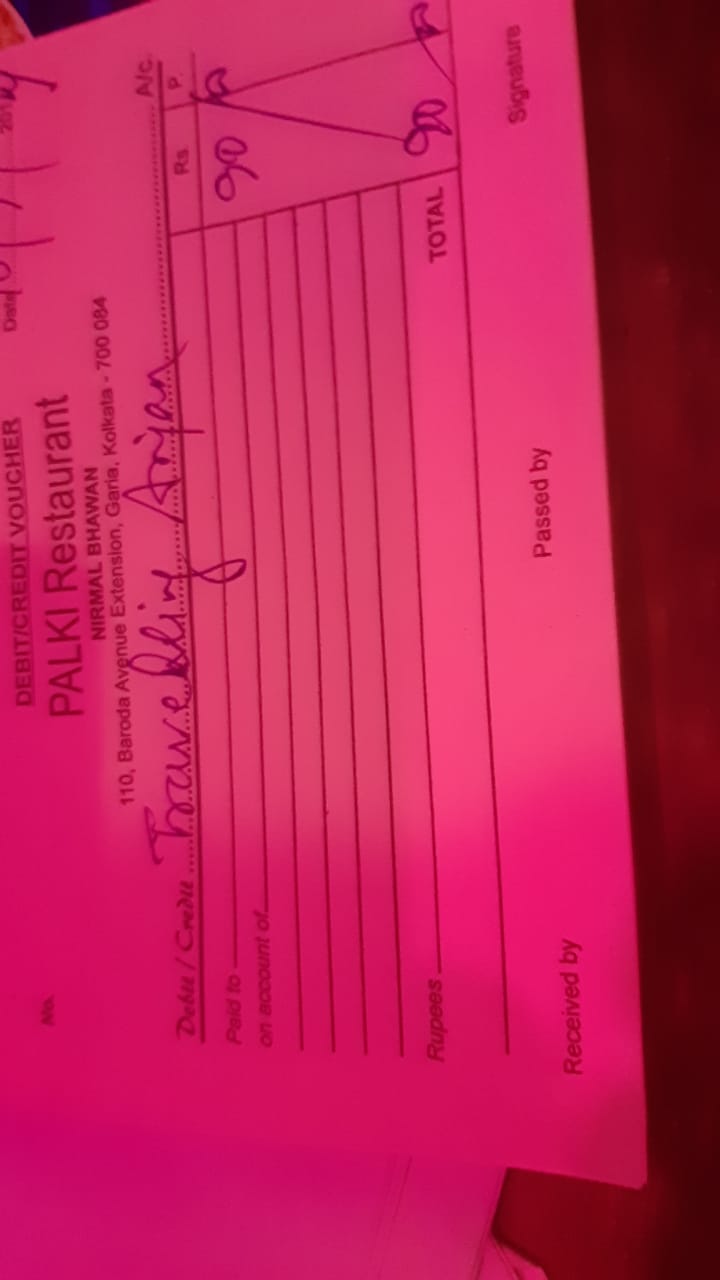 DEBIT/CREDIT VOUCHER
No.
Date
PALKI Restaurant
NIRMAL BHAWAN
110, Baroda Avenue Extension, Garia, Kolkata - 700 084
Debit / Credit Travelling Arijan A/c.
Rs. P.
Paid to 90
on account of
Rupees TOTAL 90
Received by Passed by Signature